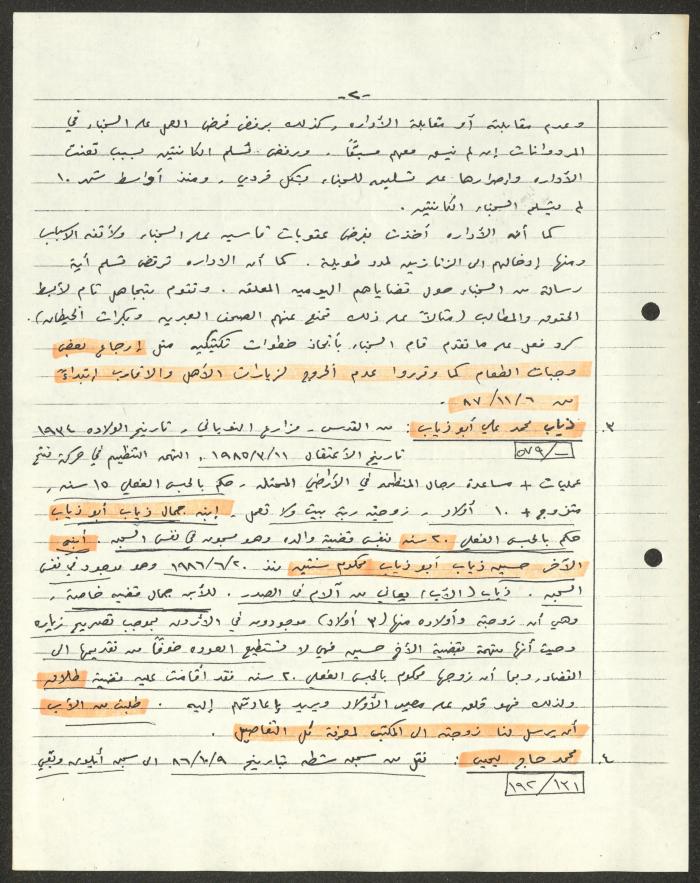 -٢-
وعدم مقابلته أو مقابلة الأداره، كذلك برفض فرض العمل على السجناء في
المردوانات إن لم ينسق معهم مسبقاً. ورفض تسلم الكانتين بسبب تعنت
الأداره وإصرارها على تسليمه للسجناء بشكل فردي. ومنذ أواسط شهر ١٠
لم يتسلم السجناء الكانتين.
كما أن الأداره أخذت بفرض عقوبات قاسيه على السجناء ولأتفه الاسباب
ومنها إدخالهم الى الزنازين لمدد طويلة. كما أن الاداره ترفض تسلم أية
رسالة من السجناء حول قضاياهم اليوميه المعلقه. وتقوم بتجاهل تام لأبسط
الحقوق والمطالب (مثلاً على ذلك تمنع عنهم الصحف العبريه وبكرات الخيطان).
كرد فعل على ما تقدم قام السجناء بأتخاذ خطوات تكتيكيه مثل إرجاع بعض
وجبات الطعام كما وقرروا عدم الخروج لزيارات الأهل والاقارب إبتداءً
من ٨٧/١١/٦.
٣. ذياب محمد علي أبو ذياب: من القدس - مزارع النوباني، تاريخ الولاده ١٩٣٤
٥٧٩/- تاريخ الأعتقال ١٩٨٥/٣/١١، التهمه التنظيم في حركة فتح
عمليات + مساعدة رجال المنظمه في الأراضي المحتله، حكم بالحبس الفعلي ١٥ سنه،
متزوج + ١٠ أولاد، زوجته ربة بيت ولا تعمل، إبنه جمال ذياب أبو ذياب
حكم بالحبس الفعلي ٢٠ سنه بنفس قضية والده وهو مسجون في نفس السجن. أبنه
الآخر حسين ذياب أبو ذياب محكوم سنتين منذ ١٩٨٦/٦/٢٠ وهو موجود في نفس
السجن. ذياب (الأب) يعاني من آلام في الصدر. للأبن جمال قضيه خاصة،
وهي أن زوجته وأولاده منها (٣ أولاد) موجودون في الأردن بموجب تصريح زياره
وحيث أنها متهمة بقضية الأخ حسين فهي لا تستطيع العوده خوفاً من تقديمها الى
القضاء، وبما أن زوجها محكوم بالحبس الفعلي ٢٠ سنه فقد أقامت عليه قضية طلاق
ولذلك فهو قلق على مصير الأولاد ويريد إعادتهم إليه. طلبت من الأب
أن يرسل لنا زوجته الى المكتب لمعرفة كل التفاصيل.
٤. محمد حاج يحيى: نقل من سجن شطه بتاريخ ٨٦/١٠/٩ الى سجن أيلون وبقي
١٩٢/١٢١